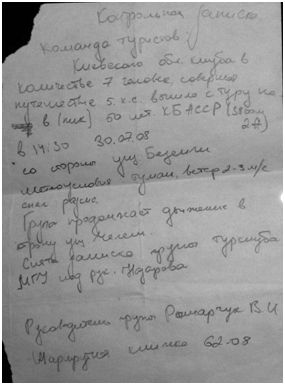 Контрольная записка
Команда туристов:
Киевского обл. клуба в
количестве 7 человек, совершая
путешествие 5 к.с. вышла с туру на
в. (пик) 50 лет КБАССР (
2А)
в 14:30 30.07.08
со стороны ущ. Безенги
метеоусловия туман, ветер 2-3 м/с
снег редкий
Группа продолжает движение в
сторону ущ.
Снята записка группы турклуба
МГУ под рук.
Руководитель группы Рошмарчук В.И
Маршрутная книжка 62-08